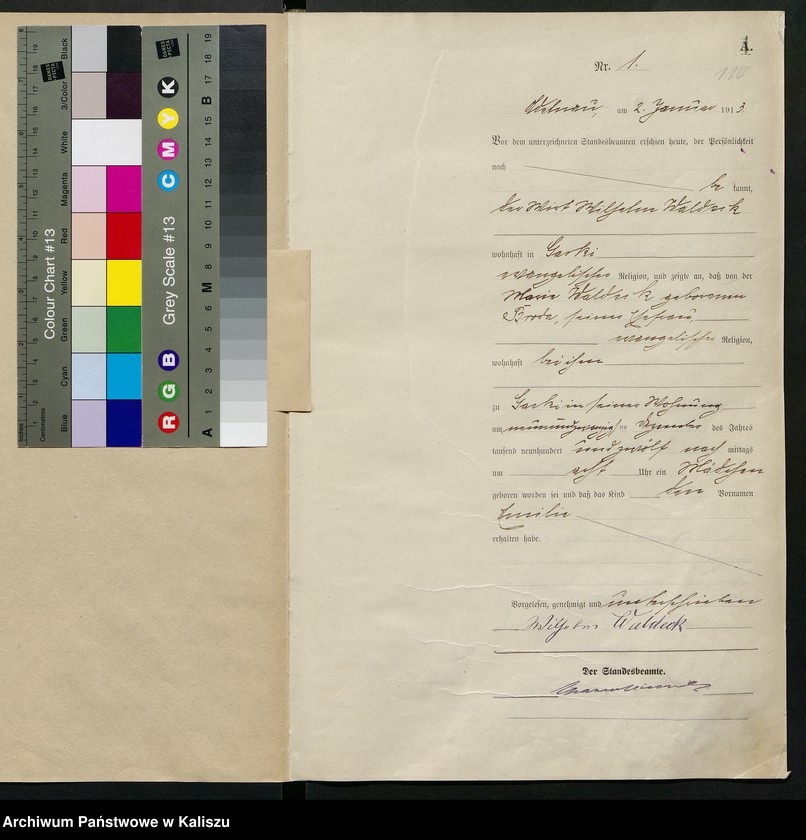 Inches
Centimetres
Colour Chart #13
Blue
Cyan
Green
Yellow
Red
Magenta
White
3/Color
Black
Grey Scale #13
R G B
C M Y K
A 1 2 3 4 5 6 M 8 9 10 11 12 13 14 15 B 17 18 19
DANES PICTA .COM
A.
Nr. 1.
110
Adelnau, am 2. Januar 1913.
Vor dem unterzeichneten Standesbeamten erschien heute, der Persönlichkeit
nach
be kannt,
der Wirt Wilhelm Waldeck
wohnhaft in Gorki
evangelischer Religion, und zeigte an, daß von der
Marie Waldeck geborenen
Broda, seiner Ehefrau,
evangelischer Religion,
wohnhaft bei ihm
zu Gorki in seiner Wohnung
am neunundzwanzigsten Dezember des Jahres
tausend neunhundert und zwölf nach mittags
um acht Uhr ein Mädchen
geboren worden sei und daß das Kind den Vornamen
Emilie
erhalten habe.
Vorgelesen, genehmigt und unterschrieben
Wilhelm Waldeck
Der Standesbeamte.
Archiwum Państwowe w Kaliszu